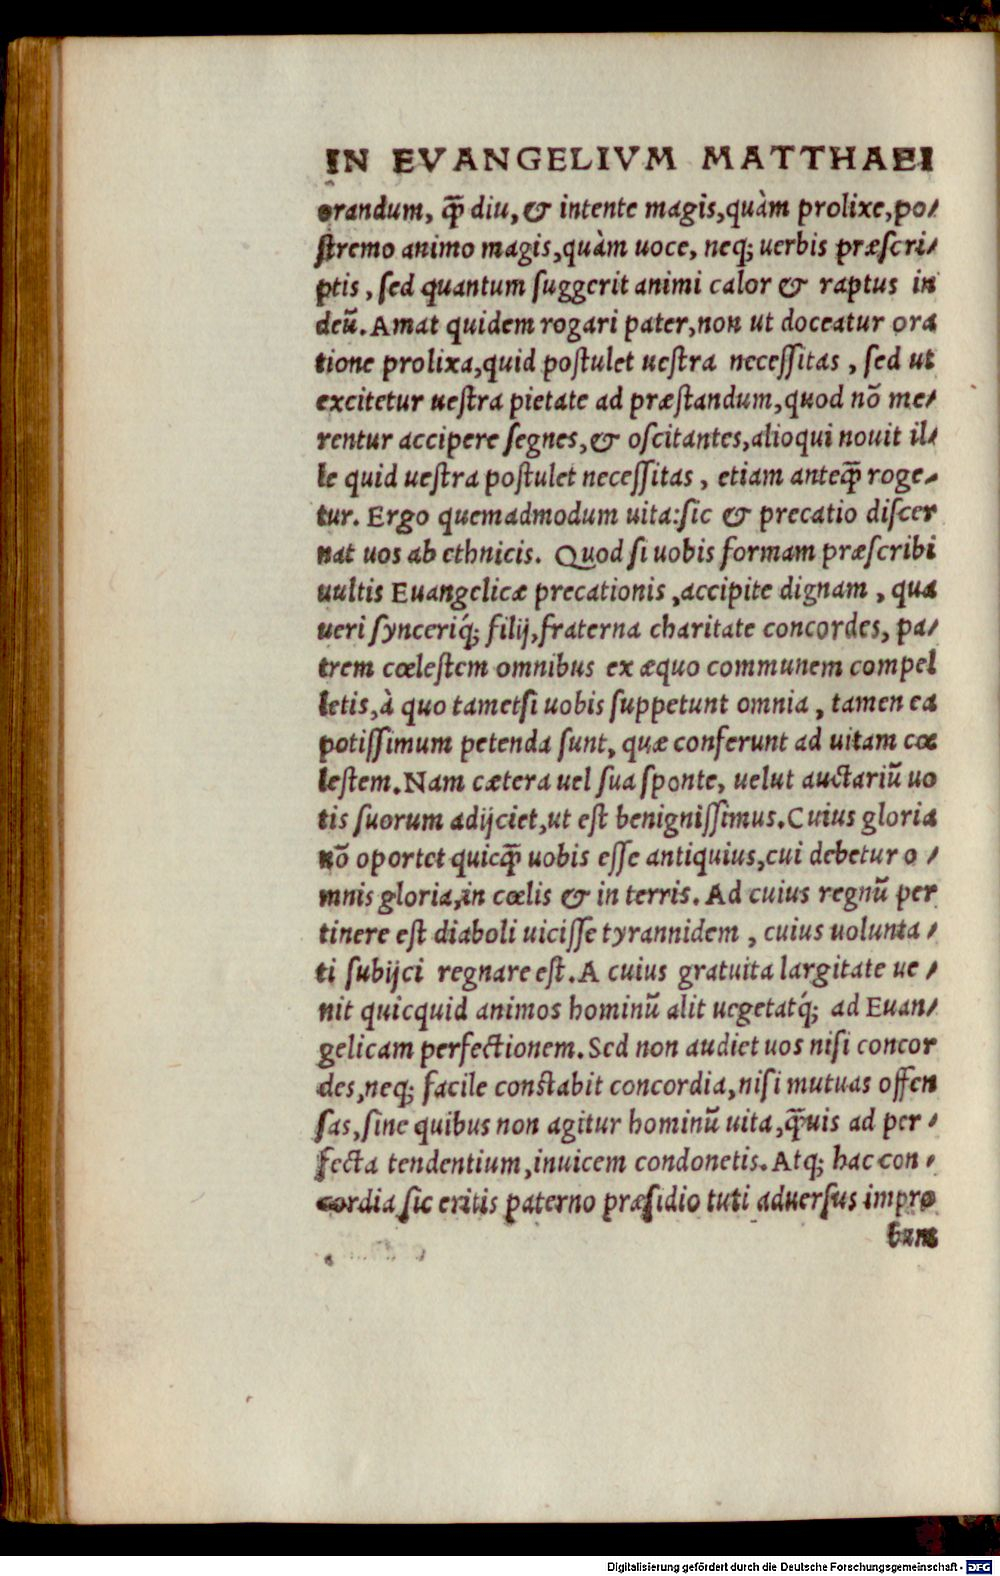 IN EVANGELIVM MATTHAEI
orandum, q̃ diu, & intente magis, quàm prolixe, po-
stremo animo magis, quàm uoce, neq; uerbis præscri-
ptis, sed quantum suggerit animi calor & raptus in
deũ. Amat quidem rogari pater, non ut doceatur ora
tione prolixa, quid postulet uestra necessitas, sed ut
excitetur uestra pietate ad præstandum, quod nõ me-
rentur accipere segnes, & oscitantes, alioqui nouit il-
le quid uestra postulet necessitas, etiam anteq̃ roge-
tur. Ergo quemadmodum uita: sic & precatio discer
nat uos ab ethnicis. Quod si uobis formam præscribi
uultis Euangelicæ precationis, accipite dignam, qua
ueri synceriq́; filij, fraterna charitate concordes, pa-
trem cœlestem omnibus ex æquo communem compel
letis, à quo tametsi uobis suppetunt omnia, tamen ea
potissimum petenda sunt, quæ conferunt ad uitam cœ
lestem. Nam cætera uel sua sponte, uelut auctariũ uo
tis suorum adijciet, ut est benignissimus. Cuius gloria
nõ oportet quicq̃ uobis esse antiquius, cui debetur o-
mnis gloria, in cœlis & in terris. Ad cuius regnũ per
tinere est diaboli uicisse tyrannidem, cuius uolunta-
ti subijci regnare est. A cuius gratuita largitate ue-
nit quicquid animos hominũ alit uegetatq́; ad Euan-
gelicam perfectionem. Sed non audiet uos nisi concor
des, neq; facile constabit concordia, nisi mutuas offen
sas, sine quibus non agitur hominũ uita, q̃uis ad per-
fecta tendentium, inuicem condonetis. Atq; hac con-
cordia sic eritis paterno præsidio tuti aduersus impro
bum
Digitalisierung gefördert durch die Deutsche Forschungsgemeinschaft - DFG